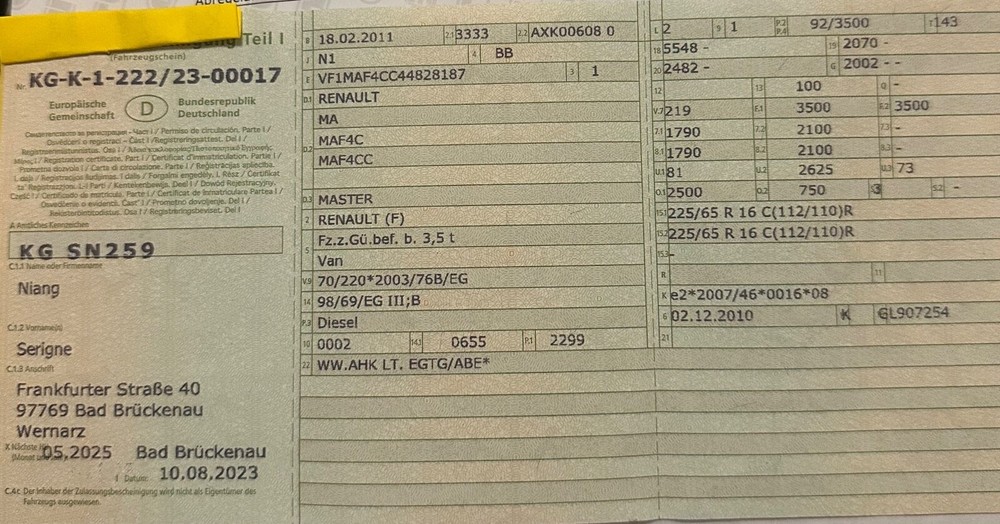 Abredei
Teil I
(Fahrzeugschein)
Nr. KG-K-1-222/23-00017
Europäische Gemeinschaft
D
Bundesrepublik Deutschland
A Amtliches Kennzeichen
KG SN259
C.1.1 Name oder Firmenname
Niang
C.1.2 Vorname(n)
Serigne
C.1.3 Anschrift
Frankfurter Straße 40
97769 Bad Brückenau
Wernarz
05,2025 Bad Brückenau
I Datum: 10,08,2023
C.4c Der Inhaber der Zulassungsbescheinigung wird nicht als Eigentümer des
Fahrzeugs ausgewiesen.
B 18.02.2011 2.1 3333 2.2 AXK00608 0
J N1 4 BB
E VF1MAF4CC44828187 3 1
D.1 RENAULT
MA
D.2 MAF4C
MAF4CC
D.3 MASTER
2 RENAULT (F)
5 Fz.z.Gü.bef. b. 3,5 t
Van
V.9 70/220*2003/76B/EG
14 98/69/EG III;B
P.3 Diesel
10 0002 14.1 0655 P.1 2299
22 WW.AHK LT. EGTG/ABE*
L 2 9 1 P.2 P.4 92/3500 T 143
18 5548 - 19 2070 -
20 2482 - G 2002 - -
12 13 100 Q -
V.7 219 F.1 3500 F.2 3500
7.1 1790 7.2 2100 7.3 -
8.1 1790 8.2 2100 8.3 -
U.1 81 U.2 2625 U.3 73
O.1 2500 O.2 750 S.2 -
15.1 225/65 R 16 C(112/110)R
15.2 225/65 R 16 C(112/110)R
15.3 -
R 11
K e2*2007/46*0016*08
6 02.12.2010 K GL907254
21